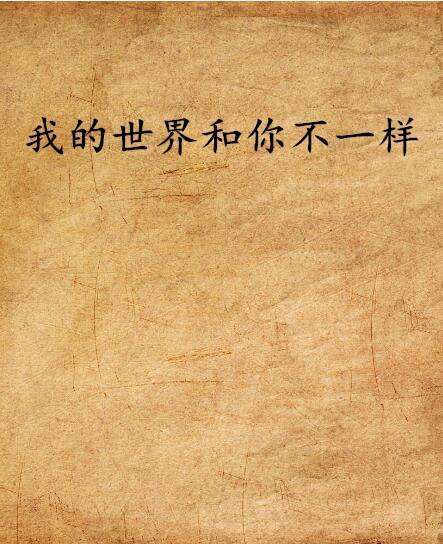 我的世界和你不一样